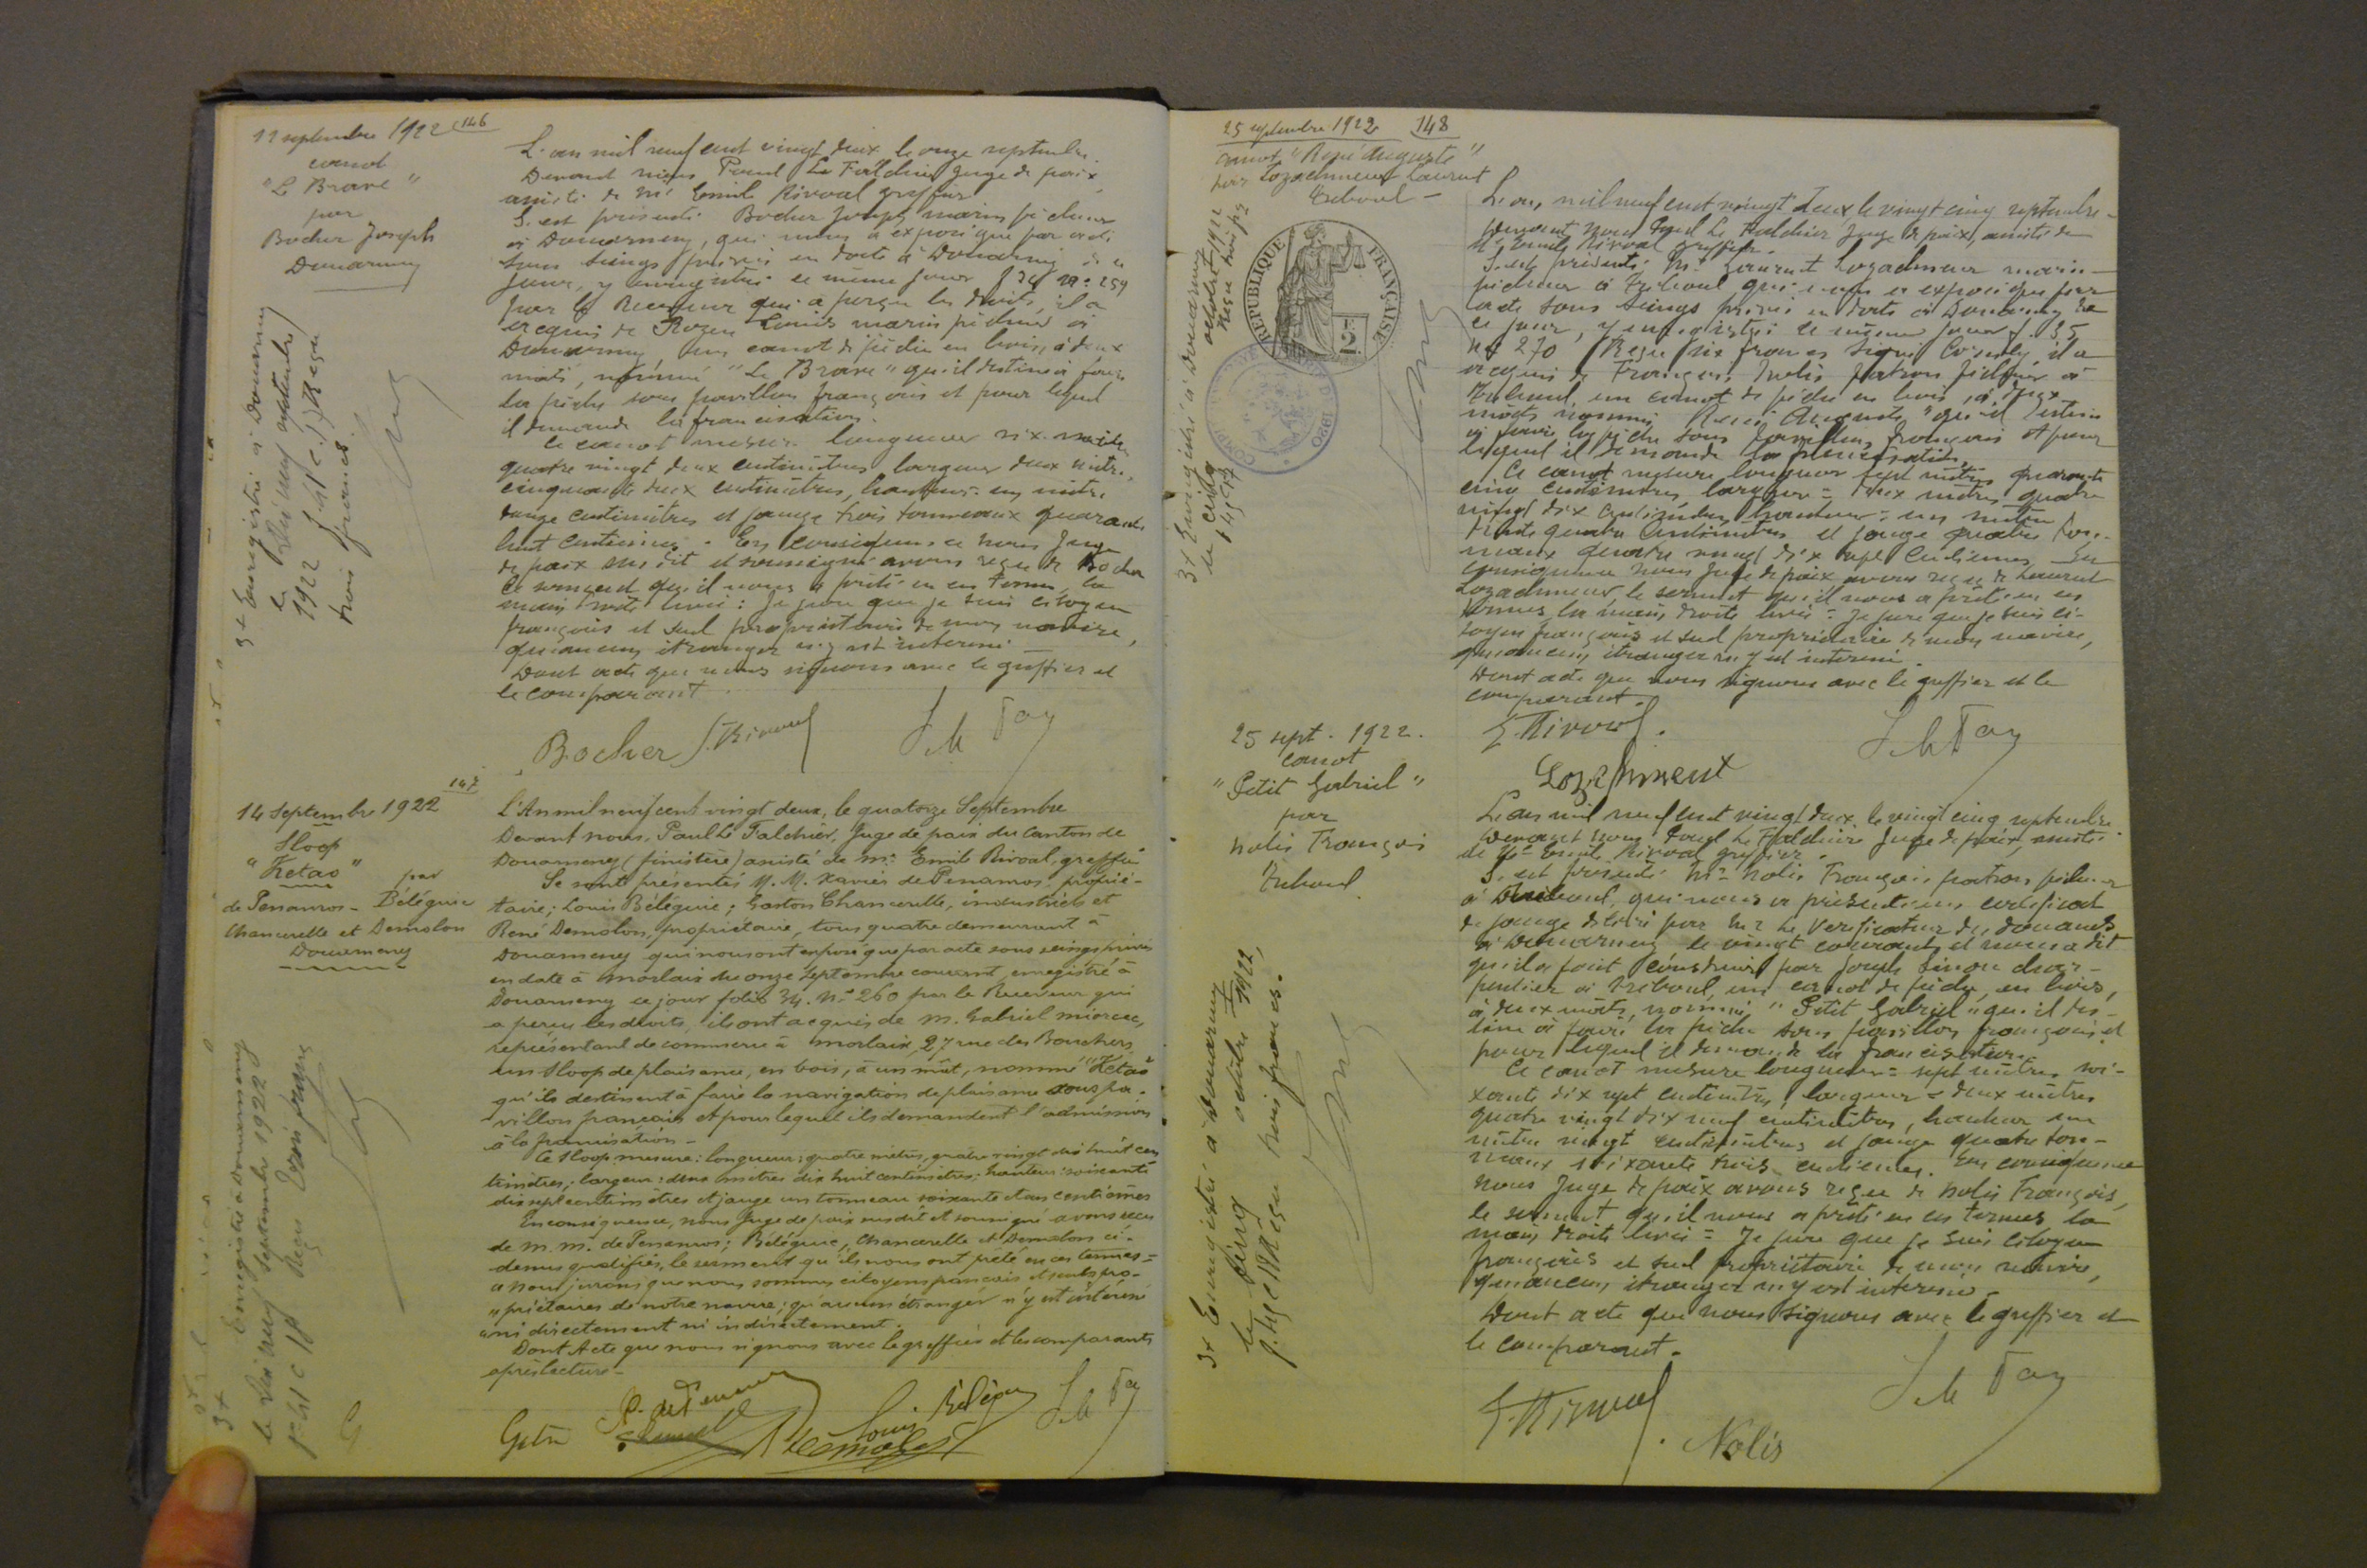 11 septembre 1922 146
canot
"Le Brave"
par
Bocher Joseph
Douarnenez
L'an mil neuf cent vingt deux le onze septembre.
Devant nous Paul Le Falchier juge de paix,
assisté de Me Emile Rivoal greffier
S'est présenté Bocher Joseph marin pêcheur
à Douarnenez, qui nous a exposé que par acte
sous seings privés en date à Douarnenez de ce
jour, y enregistré le même jour f 34 no 259
par le Receveur qui a perçu les droits, il a
acquis de Rozen Louis marin pêcheur à
Douarnenez, un canot de pêche en bois, à deux
mâts, nommé "Le Brave" qu'il destine à faire
la pêche sous pavillon français et pour lequel
il demande la francisation.
Ce canot mesure longueur six mètres
quatre vingt deux centimètres, largeur deux mètres
cinquante deux centimètres, hauteur: un mètre
douze centimètres et jauge trois tonneaux quarante
huit centièmes. En conséquence nous Juge
de paix susdit et soussigné avons reçu de Bocher
le serment qu'il nous a prêté en ces termes, la
main droite levée: Je jure que je suis citoyen
français et seul propriétaire de mon navire,
qu'aucun étranger n'y est intéressé.
Dont acte que nous signons avec le greffier et
le comparant.
Bocher E. Rivoal
3+ Enregistré à Douarnenez
le dix neuf septembre
1922 f 41 c. 17 Reçu
trois francs.
147
14 Septembre 1922
Sloop
"Ketao"
par
de Penanros - Béléguic
Chancerelle et Demolon
Douarnenez
L'An mil neuf cent vingt deux, le quatorze Septembre
Devant nous, Paul Le Falchier, Juge de paix du Canton de
Douarnenez (finistère) assisté de Me Emile Rivoal, greffier
Se sont présentés M.M. Xavier de Penanros, proprié-
taire; Louis Béléguic; Gaston Chancerelle, industriels et
René Demolon, propriétaire, tous quatre demeurant à
Douarnenez qui nous ont exposé que par acte sous seings privés
en date à Morlaix du onze Septembre courant, enregistré à
Douarnenez ce jour folio 34. No 260 par le Receveur qui
a perçu les droits, ils ont acquis de M. Gabriel Miorcec,
représentant de commerce à Morlaix, 27 rue des Bouchers
un Sloop de plaisance, en bois, à un mât, nommé "Ketao"
qu'ils destinent à faire la navigation de plaisance sous pa-
villon français et pour lequel ils demandent l'admission
à la francisation -
Ce Sloop mesure: longueur: quatre mètres, quatre vingt dix huit cen
timètres; largeur: deux mètres dix huit centimètres; hauteur: soixante
dix sept centimètres et jauge un tonneau soixante et un centièmes
En conséquence, nous Juge de paix susdit et soussigné avons reçu
de M.M. de Penanros; Béléguic, Chancerelle et Demolon ci-
dessus qualifiés, le serment qu'ils nous ont prêté en ces termes =
" Nous jurons que nous sommes citoyens français et seuls pro-
" priétaires de notre navire; qu'aucun étranger n'y est intéressé
" ni directement ni indirectement.
Dont Acte que nous signons avec le greffier et les comparants
après lecture -
Louis Béléguic
R Demolon
3+ Enregistré à Douarnenez
le dix neuf Septembre 1922
fo 41 c 18 Reçu trois francs
25 septembre 1922 148
canot "René Auguste"
par Lozachmeur Laurent
Tréboul -
REPUBLIQUE FRANÇAISE
L'an mil neuf cent vingt deux, le vingt cinq septembre -
Devant nous Paul Le Falchier Juge de paix, assisté de
Me Emile Rivoal greffier.
S'est présenté Mr Laurent Lozachmeur marin-
pêcheur à Tréboul qui nous a exposé que par
acte sous seings privés en date à Douarnenez de
ce jour, y enregistré le même jour f. 35
No 270 Reçu six francs signé il a
acquis de François Nolis patron pêcheur à
Tréboul, un canot de pêche en bois, à deux
mâts nommé "René Auguste" qu'il destine
à faire la pêche sous pavillon français et pour
lequel il demande la francisation.
Ce canot mesure longueur sept mètres quarante
cinq centimètres, largeur = deux mètres quatre
vingt dix centimètres, hauteur: un mètre
trente quatre centimètres et jauge quatre ton-
neaux quatre vingt dix sept centièmes. En
conséquence nous Juge de paix avons reçu de Laurent
Lozachmeur, le serment qu'il nous a prêté en ces
termes, la main droite levée = Je jure que je suis ci-
toyen français et seul propriétaire de mon navire,
qu'aucun étranger n'y est intéressé.
Dont acte que nous signons avec le greffier et le
comparant.
E. Rivoal.
3+ Enregistré à Douarnenez
le cinq octobre 1922
Reçu trois frs
25 sept. 1922.
canot
"Petit Gabriel"
par
Nolis François
Tréboul
L'an mil neuf cent vingt deux le vingt cinq septembre
Devant nous Paul Le Falchier Juge de paix, assisté
de Me Emile Rivoal greffier.
S'est présenté Mr Nolis François, patron pêcheur
à Tréboul, qui nous a présenté un certificat
de jauge délivré par Mr Le Vérificateur des douanes
à Douarnenez le vingt courant, et nous a dit
qu'il a fait construire par Joseph Simon char-
pentier à Tréboul, un canot de pêche, en bois,
à deux mâts, nommé "Petit Gabriel" qu'il des-
tine à faire la pêche sous pavillon français et
pour lequel il demande la francisation.
Ce canot mesure longueur = sept mètres soi-
xante dix sept centimètres, largeur = deux mètres
quatre vingt dix neuf centimètres, hauteur un
mètre vingt centimètres et jauge quatre ton-
neaux soixante trois centièmes. En conséquence
nous Juge de paix avons reçu de Nolis François,
le serment qu'il nous a prêté en ces termes la
main droite levée = Je jure que je suis citoyen
français et seul propriétaire de mon navire,
qu'aucun étranger n'y est intéressé -
Dont acte que nous signons avec le greffier et
le comparant.
E. Rivoal. Nolis
3+ Enregistré à Douarnenez
le cinq octobre 1922,
Reçu trois francs.